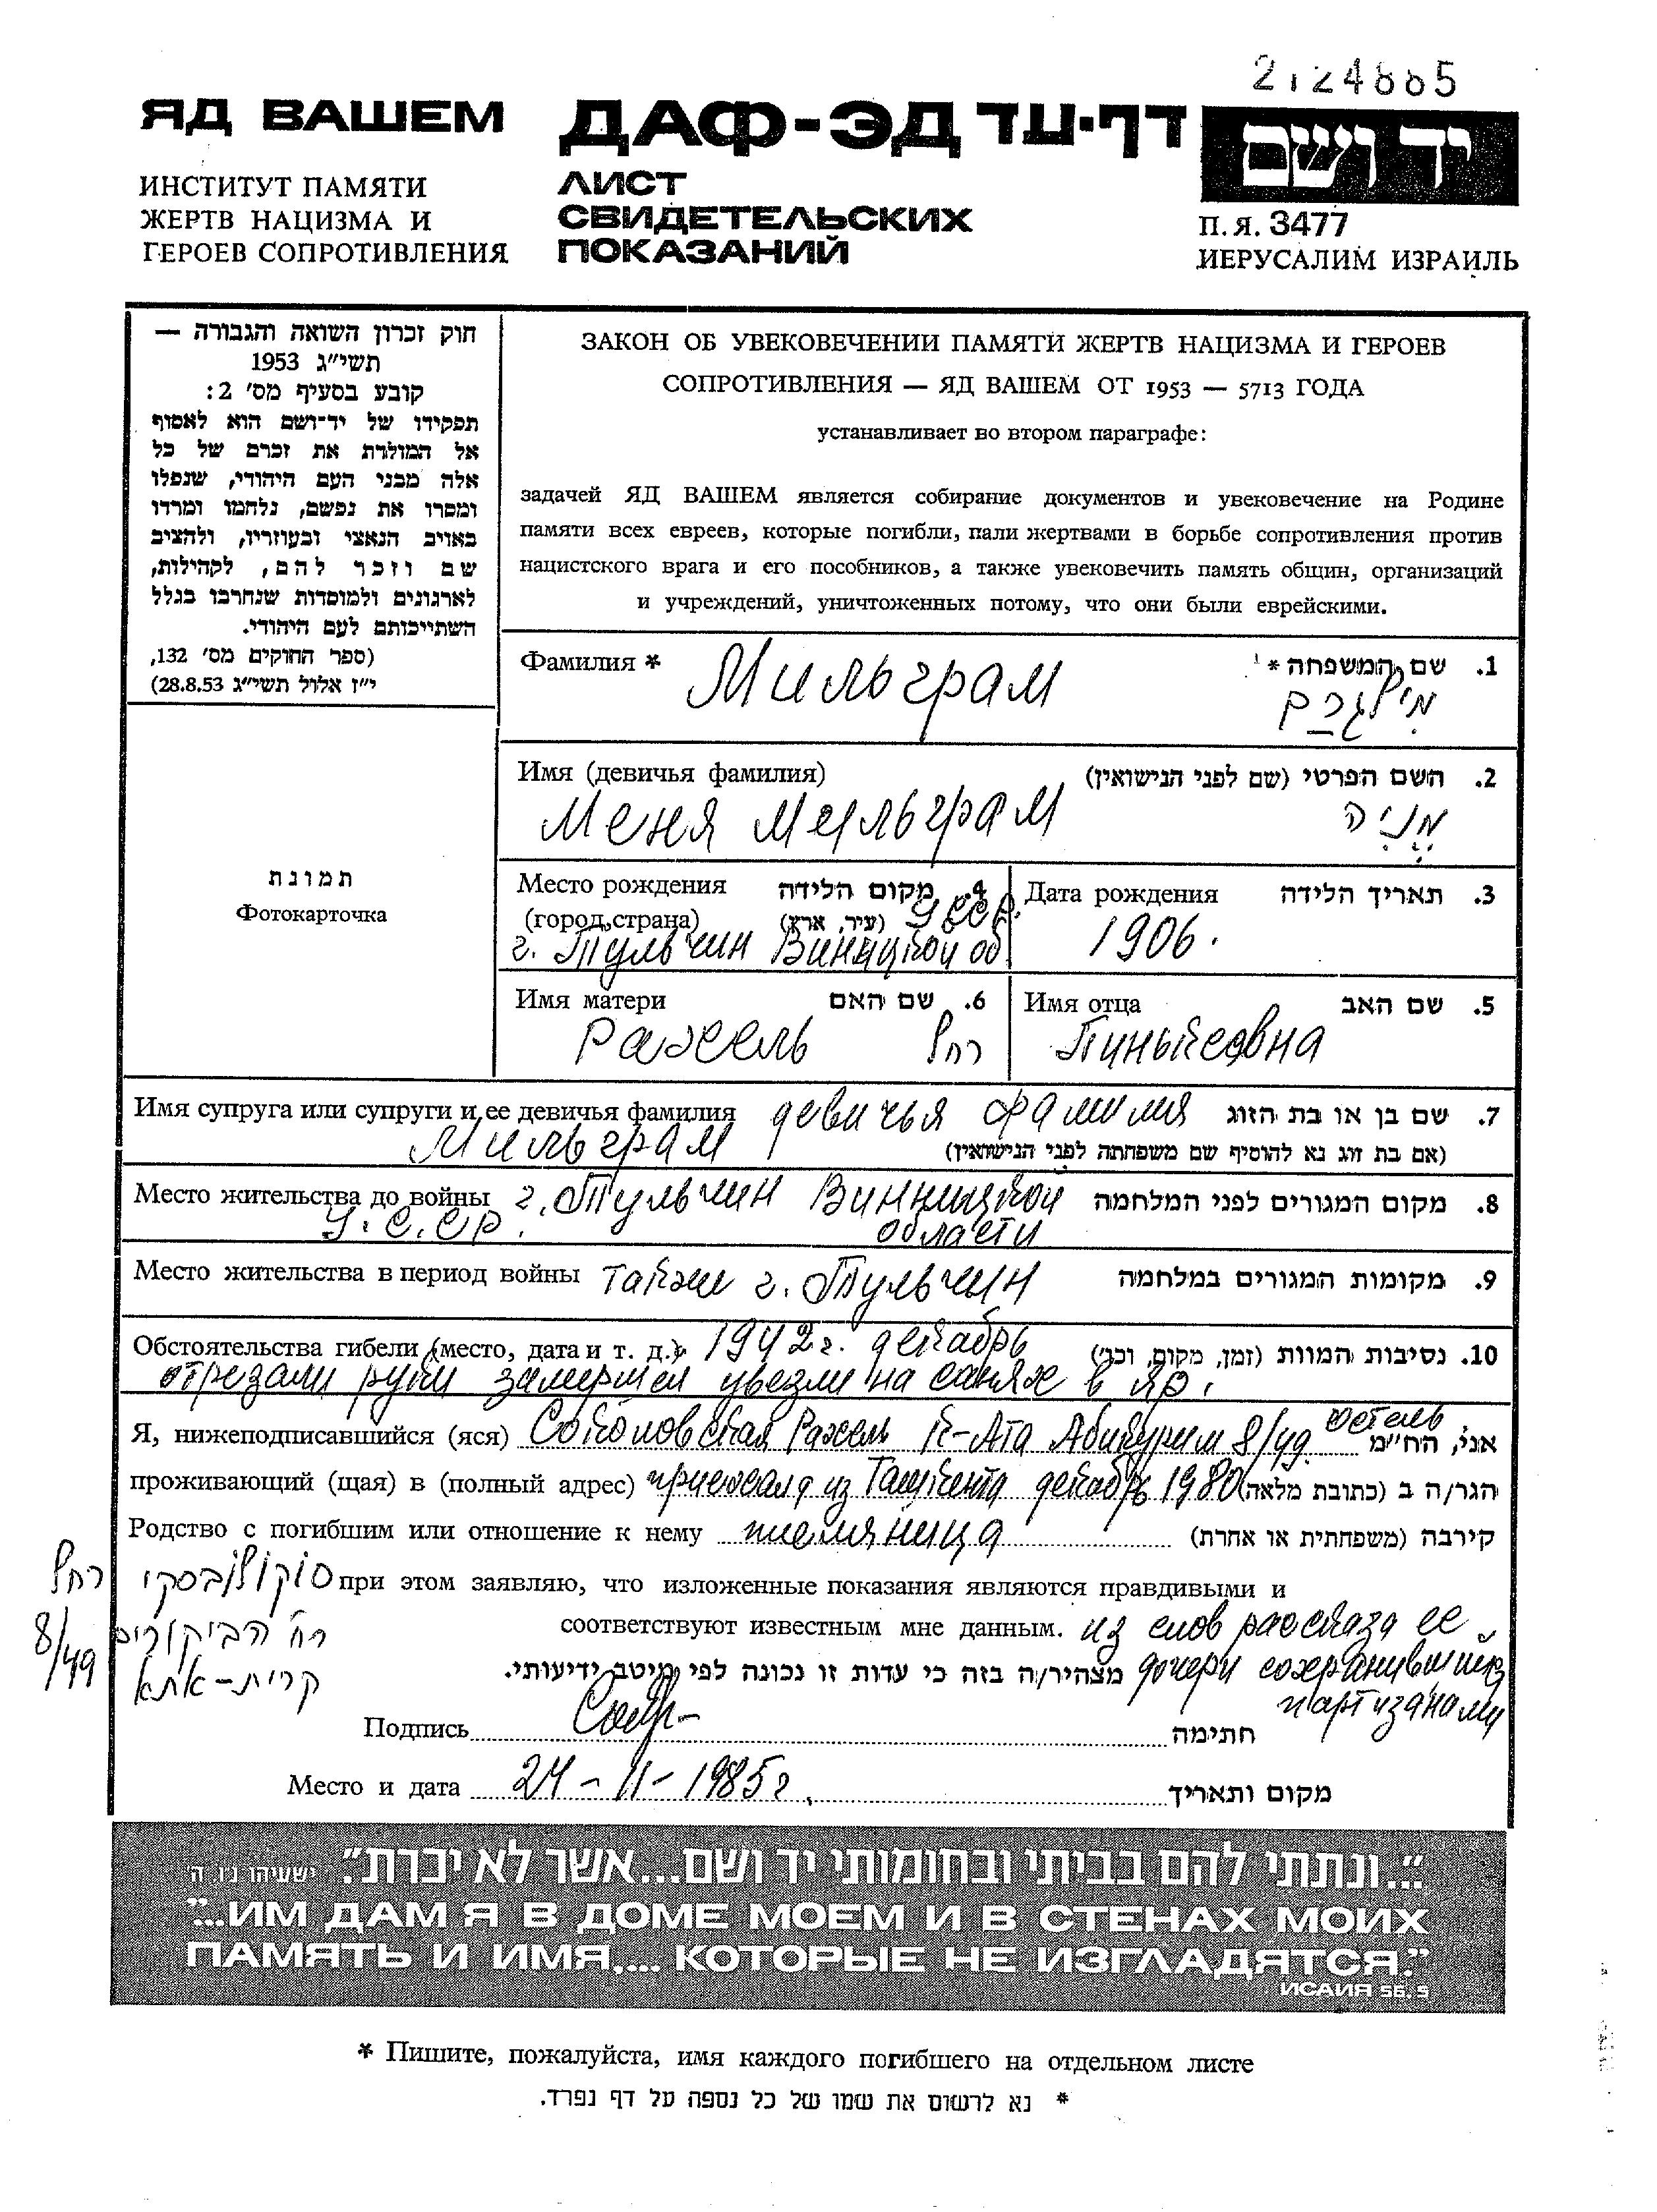 2124885
ЯД ВАШЕМ
ИНСТИТУТ ПАМЯТИ
ЖЕРТВ НАЦИЗМА И
ГЕРОЕВ СОПРОТИВЛЕНИЯ
ДАФ-ЭД דף-עד
ЛИСТ
СВИДЕТЕЛЬСКИХ
ПОКАЗАНИЙ
יד ושם
П. Я. 3477
ИЕРУСАЛИМ ИЗРАИЛЬ
חוק זכרון השואה והגבורה —
תשי״ג 1953
קובע בסעיף מס׳ 2:
תפקידו של יד־ושם הוא לאסוף
אל המולדת את זכרם של כל
אלה מבני העם היהודי, שנפלו
ומסרו את נפשם, נלחמו ומרדו
באויב הנאצי ובעוזריו, ולהציב
שם וזכר להם, לקהילות,
לארגונים ולמוסדות שנחרבו בגלל
השתייכותם לעם היהודי.
(ספר החוקים מס׳ 132,
י״ז אלול תשי״ג 28.8.53)
ЗАКОН ОБ УВЕКОВЕЧЕНИИ ПАМЯТИ ЖЕРТВ НАЦИЗМА И ГЕРОЕВ
СОПРОТИВЛЕНИЯ — ЯД ВАШЕМ ОТ 1953 — 5713 ГОДА
устанавливает во втором параграфе:
задачей ЯД ВАШЕМ является собирание документов и увековечение на Родине
памяти всех евреев, которые погибли, пали жертвами в борьбе сопротивления против
нацистского врага и его пособников, а также увековечить память общин, организаций
и учреждений, уничтоженных потому, что они были еврейскими.
תמונת
Фотокарточка
Фамилия * Мильграм 1. שם המשפחה *
מילגרם
Имя (девичья фамилия) 2. השם הפרטי (שם לפני הנישואין)
Меня Мильграм מניה
Место рождения 4. מקום הלידה
(город, страна) (עיר, ארץ) УССР.
г. Тульчин Виницкой об
Дата рождения 3. תאריך הלידה
1906.
Имя матери 6. שם האם
Рахель רחל
Имя отца 5. שם האב
Имя супруга или супруги и ее девичья фамилия девичья фамилия 7. שם בן או בת הזוג
Мильграм (אם בת זוג נא להוסיף שם משפחתה לפני הנישואין)
Место жительства до войны г. Тульчин Винницкой 8. מקום המגורים לפני המלחמה
У.С.СР. области
Место жительства в период войны также г. Тульчин 9. מקומות המגורים במלחמה
Обстоятельства гибели (место, дата и т. д.) 1942г. декабрь 10. נסיבות המוות (זמן, מקום, וכו׳)
отрезали руки увезли на санях в яр.
Я, нижеподписавшийся (яся) Соколовская Рахель К-Ата Абикурим 8/49 אני, הח״מ
проживающий (щая) в (полный адрес) приехала из Ташкента декабрь 1980 הגר/ה ב (כתובת מלאה)
Родство с погибшим или отношение к нему племяница קירבה (משפחתית או אחרת)
רחל סוקולובסקי при этом заявляю, что изложенные показания являются правдивыми и
8/49 רח׳ הביקורים соответствуют известным мне данным. из слов рассказа ее
קרית-אתא מצהיר/ה בזה כי עדות זו נכונה לפי מיטב ידיעותי. дочери сохранившиеся
партизанами
Подпись חתימה
Место и дата 24-11-1985г. מקום ותאריך
״...ונתתי להם בביתי ובחומותי יד ושם...אשר לא יכרת״. ישעיהו נ״ו, ה
"...ИМ ДАМ Я В ДОМЕ МОЕМ И В СТЕНАХ МОИХ
ПАМЯТЬ И ИМЯ.... КОТОРЫЕ НЕ ИЗГЛАДЯТСЯ."
ИСАИЯ 56, 5
* Пишите, пожалуйста, имя каждого погибшего на отдельном листе
* נא לרשום את שמו של כל נספה על דף נפרד.